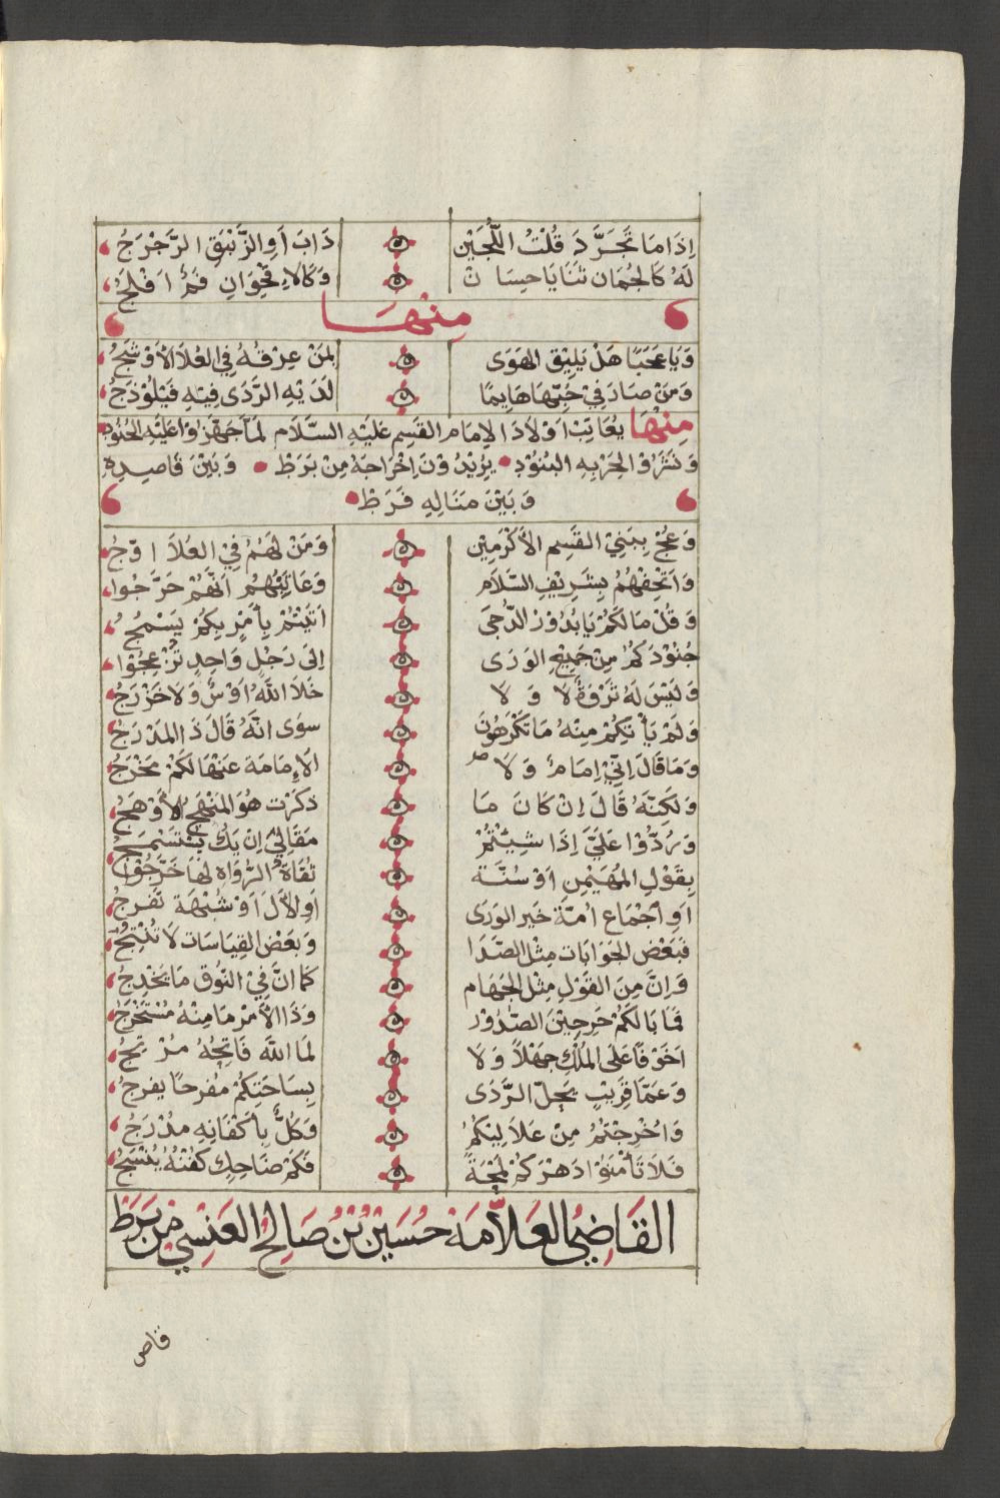 اِذَا مَا تَجَرَّدَ قُلْتُ اللُّجَيْنْ ذَابَ اَوِ الزَّنْبَقِ الرَّجْرَجُ
لَهُ كَالجُمَان ثَنَايَا حِسَانْ وَكَالاُقْحُوَانِ فَمٌ اَفْلَجُ
مِنْهَا
وَيَا عَجَبًا هَلْ يَلِيْقُ الهَوَى بِمَنْ عِرْقُهُ فِي العُلاَ الأَوْشَجُ
وَمَنْ صَادَ فِيْ حُبِّهَا هَايِمًا لَدَيْهِ الرَّدَى فِيْهِ فَيْلُوْذَجُ
مِنْهَا يُعَاتِبُ اَوْلاَدَ الاِمَام القَسِم عَلَيْهِ السَّلاَم لَمَّا جَهَّزُوْا عَلَيْهِ الجُنُود
وَنَشَرُوْا لِحَرْبِهِ البُنُوْدِ يُرِيْدُوْنَ اِخْرَاجَهُ مِنْ بَرَطْ وَبَيْنَ قَاصِدِهِ
وَبَيْنَ مَنَالِهِ فَرَطْ
وَعُجْ بِبَنِيْ القَسِم الأَكْرَمِيْن وَمَنْ لَهُمُ فِي العُلاَ اَوْجُ
وَاَتْحِفْهُمُ بِشَرِيْفِ السَّلاَم وَعَاتِبْهُم اَنَّهُمْ حَرَّجُوا
وَقُلْ مَا لَكُمْ يَا بُدُوْرَ الدُّجَى اَتَيْتُمْ بِأَمْرٍ بِكُمْ يَسْمُجُ
جُنُوْدَكُمُ مِنْ جَمِيْعِ الوَرَى اِلَى رَجُلٍ وَاحِدٍ تُزْعِجُوْا
وَلَيْسَ لَهُ ثَرْوَةٌ لاَ وَلاَ خَلاَ اللهَ اَوْسٌ وَلاَ خَزْرَجُ
وَلَمْ يَأْتِكُمْ مِنْهُ مَا تَكْرَهُوْنَ سِوَى اَنَّهُ قَالَ ذَا المَدْرَجُ
وَمَا قَالَ اِنِّيْ اِمَامٌ وَلاَ الاِمَامَة عَنْهَا لَكُمْ مَخْرَجُ
وَلَكِنَّهُ قَالَ اِنْ كَانَ مَا ذَكَرْت هُوَ المَنْهَجُ الأَوْهَجُ
وَرُدُّوْا عَلَيَّ اِذَا شِيْتُمُ مَقَالِيَ اِنْ يَكُ يُسْتَسْمَجُ
بِقَوْلِ المُهَيْمِنِ اَوْ سُنَّةٍ ثُقَاةُ الرُّوَاة لَهَا خَرَّجُوْا
اَوِ اجْمَاعِ اُمَّةِ خَيْرِ الوَرَى اَوِ الاَلَ اَوْ شُبْهَة تفرجُ
فَبَعْض الجَوَابَات مِثْلُ الصَّدَا وَبَعْضُ القِيَاسَات لاَ تُنْتِجُ
وَاِنَّ مِنَ القَوْلِ مِثْلَ الجَهَام كَمَا انَّ فِيْ النُّوْق مَا يُخْدِجُ
فَمَا بَالَكُمْ حَرِجِيْنَ الصُّدُوْر وَذَا الأَمْرُ مَا مِنْهُ مُسْتَخْرَجُ
اَخَوْفًا عَلَى المُلْكِ جَهْلاً وَلاَ لِمَا اللهُ فَاتِحُهُ مُرْتِجُ
وَعَمَّا قَرِيْبٍ يَحِلُّ الرَّدَى بِسَاحَتِكُمْ مفرحًا يفرجُ
وَاُخْرِجْتُمُ مِنْ عَلاَلِيْكُمُ وَكُلٌّ بِأَكْفَانِهِ مُدْرَجُ
فَلاَ تَأْمَنُوْا دَهْرَكُمْ لَمْحَةً فَكَمْ ضَاحِكٍ كَفْنُهُ يُنْسَجُ
القَاضِيُ العَلاَّمَة حُسَيْنُ بْنُ صَالِحُ العَنسِيْ مِنْ بَرَطْ
قاض